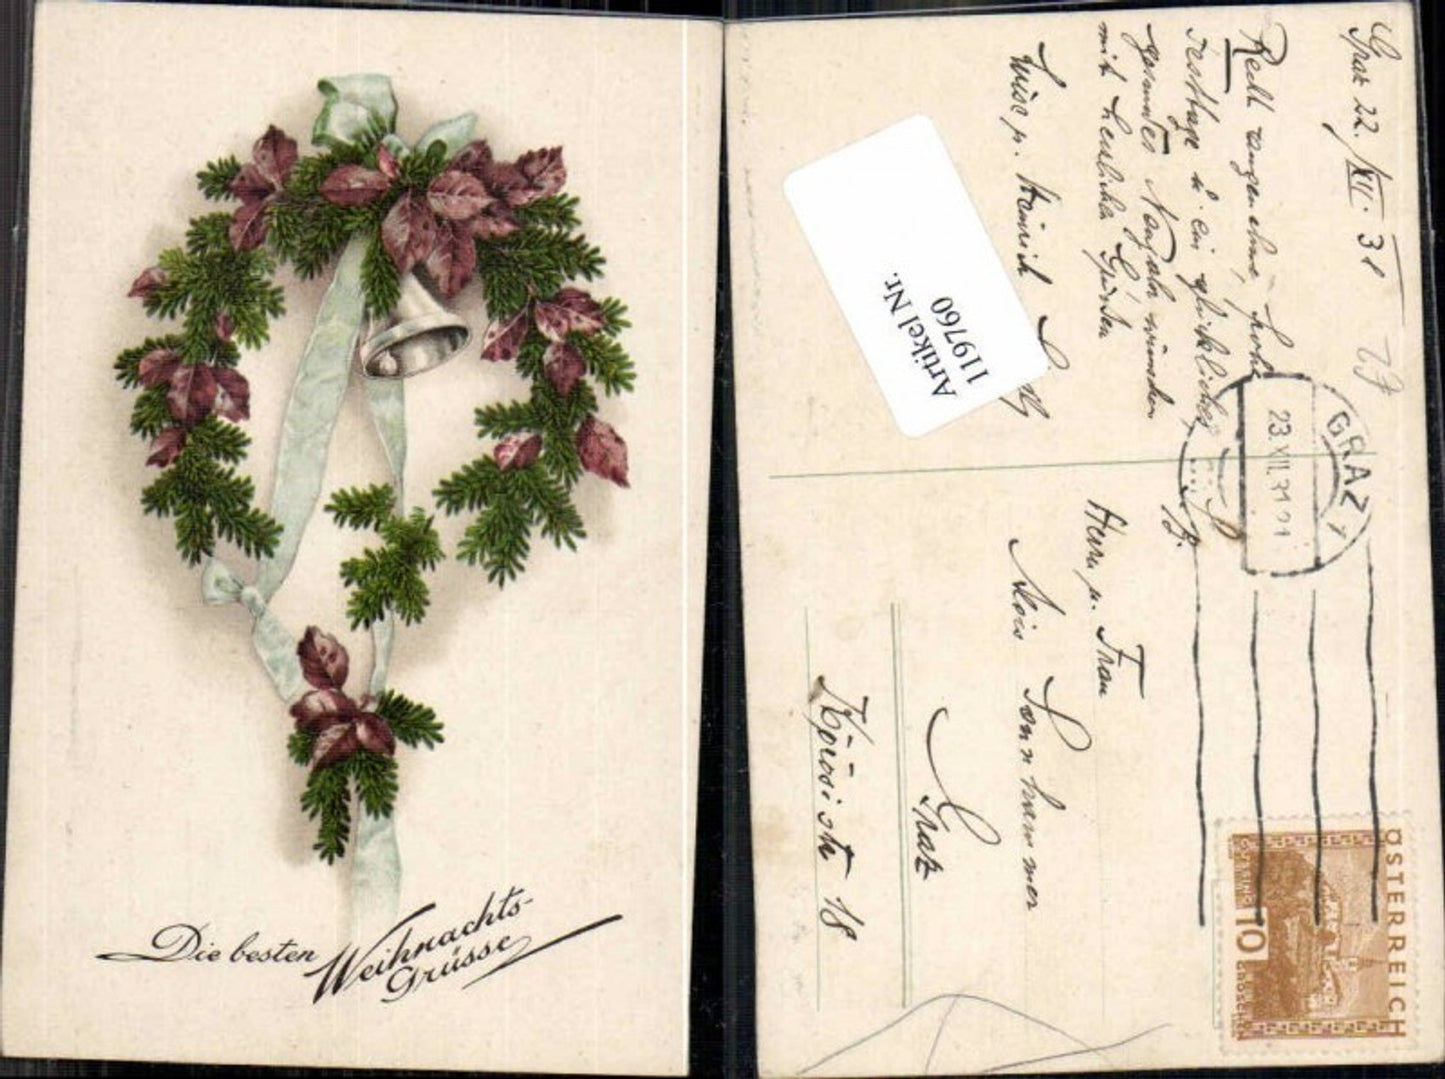 Die besten Weihnachts-
Grüsse
Graz 22. XII. 31
Recht angenehme, frohe
Festtage u. ein glückliches
gesundes Neujahr wünschen
mit herzlichen Grüßen
Luise u. Heinrich
Artikel Nr.
119760
GRAZ 1
23.XII.31 21
Herrn u. Frau
Alois Sonnhammer
Graz
Körösistr 18
ÖSTERREICH
10
GROSCHEN